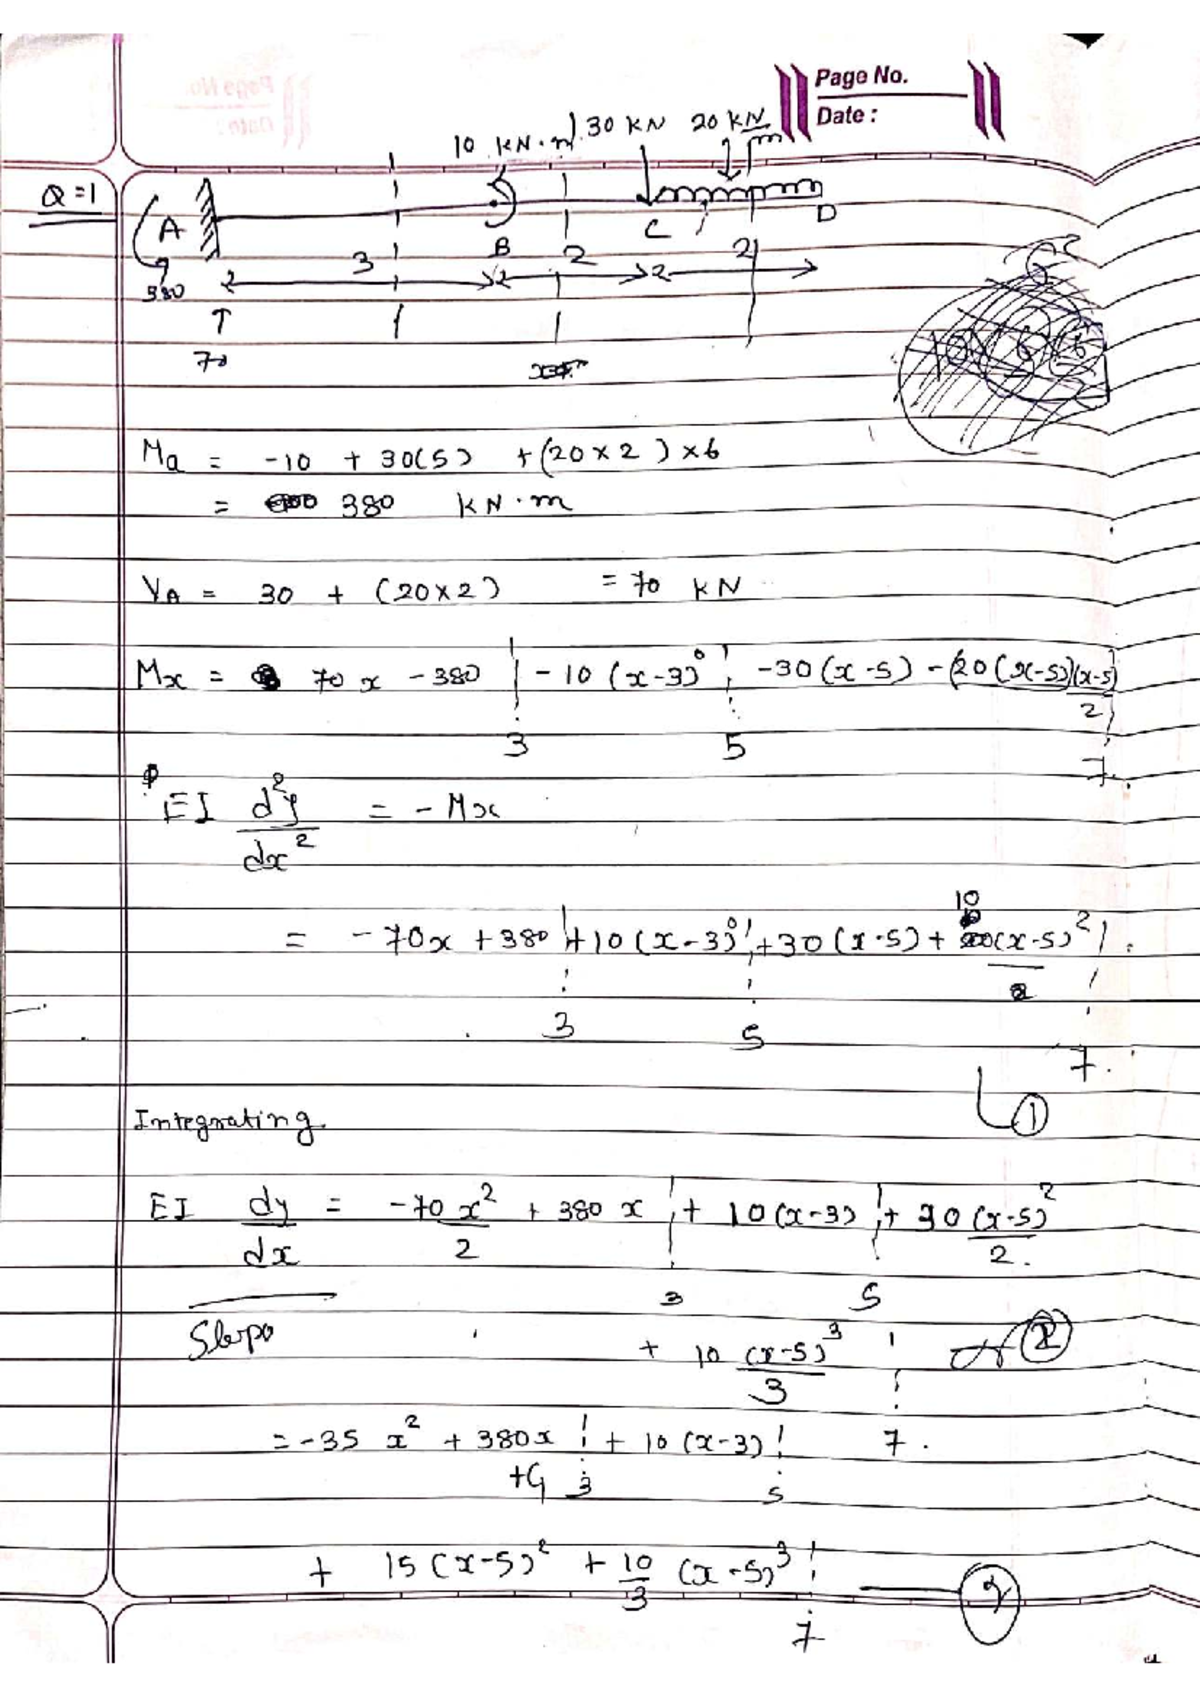 Page No.
Date :
10 KN·m 30 KN 20 KN/m
Q=1
A B C D
380 3 2 2
70
Ma = -10 + 30(5) + (20×2)×6
= 380 KN·m
VA = 30 + (20×2) = 70 KN
Mx = 70x - 380 ¦ - 10(x-3)⁰ ¦ - 30(x-5) - (20(x-5)(x-5)/2 ¦
3 5 7.
EI d²y/dx² = - Mx
= -70x + 380 ¦ + 10(x-3)⁰ ¦ + 30(x-5) + 10(x-5)² ¦
3 5 7.
①
Integrating
EI dy/dx = -70x²/2 + 380x ¦ + 10(x-3) ¦ + 30(x-5)²/2.
3 5
Slope + 10(x-5)³/3 ¦ ②
= -35x² + 380x ¦ + 10(x-3) ¦ 7.
+C₁ 3 5
+ 15(x-5)² + 10/3 (x-5)³ ¦ — ②
7